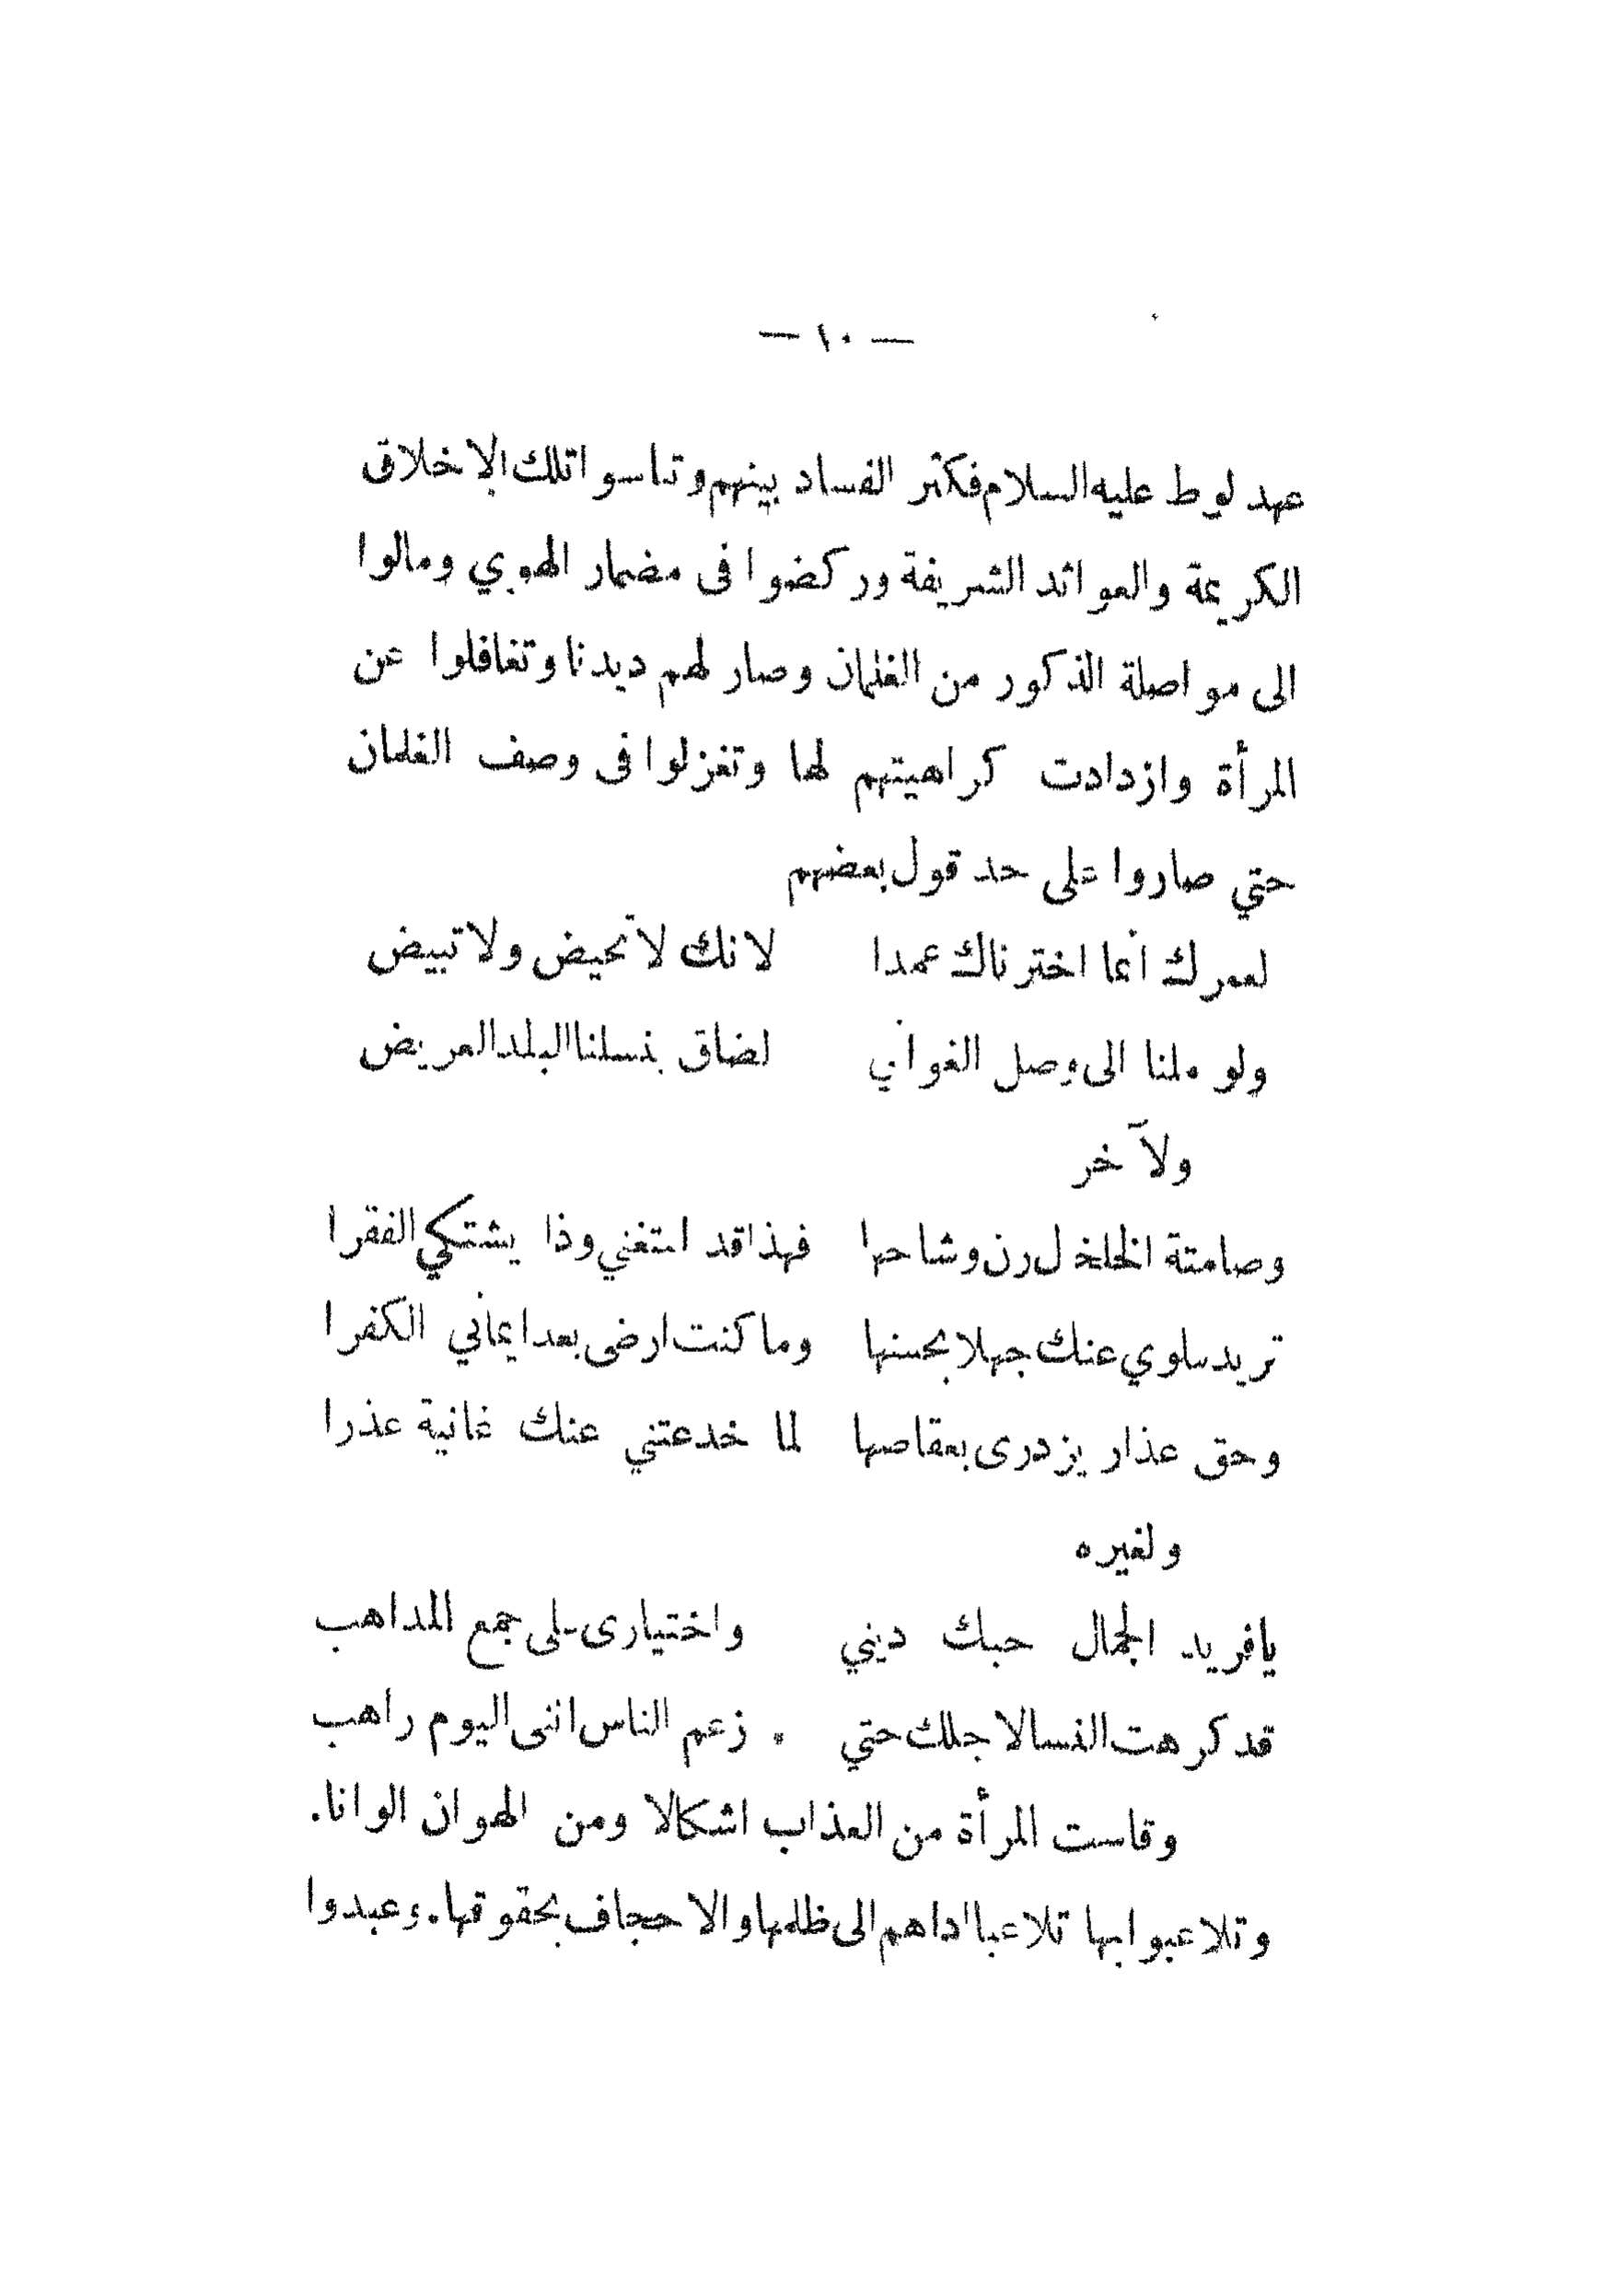 — ١٠ —
عهد لوط عليه السلام فكثر الفساد بينهم وتناسوا تلك الاخلاق
الكريمة والعوائد الشريفة وركضوا فى مضمار الهوي ومالوا
الى مواصلة الذكور من الغلمان وصار لهم ديدنا وتغافلوا عن
المرأة وازدادت كراهيتهم لها وتغزلوا فى وصف الغلمان
حتي صاروا على حد قول بعضهم
لعمرك انما اخترناك عمدا لانك لا تحيض ولا تبيض
ولو ملنا الى وصل الغواني لضاق بنسلنا البلد العريض
ولآخر
وصامتة الخلخل رن وشاحها فهذا قد استغني وذا يشتكي الفقرا
تريد سلوي عنك جهلا بحسنها وما كنت ارضى بعد ايماني الكفرا
وحق عذار يزدرى بعقاصها لما خدعتني عنك غانية عذرا
ولغيره
يافريد الجمال حبك ديني واختيارى على جمع المداهب
قد كرهت النسالا جلك حتي . زعم الناس اننى اليوم راهب
وقاست المرأة من العذاب اشكالا ومن الهوان الوانا.
وتلاعبوا بها تلاعبا اداهم الى ظلمها والاحجاف بحقوقها. وعبدوا